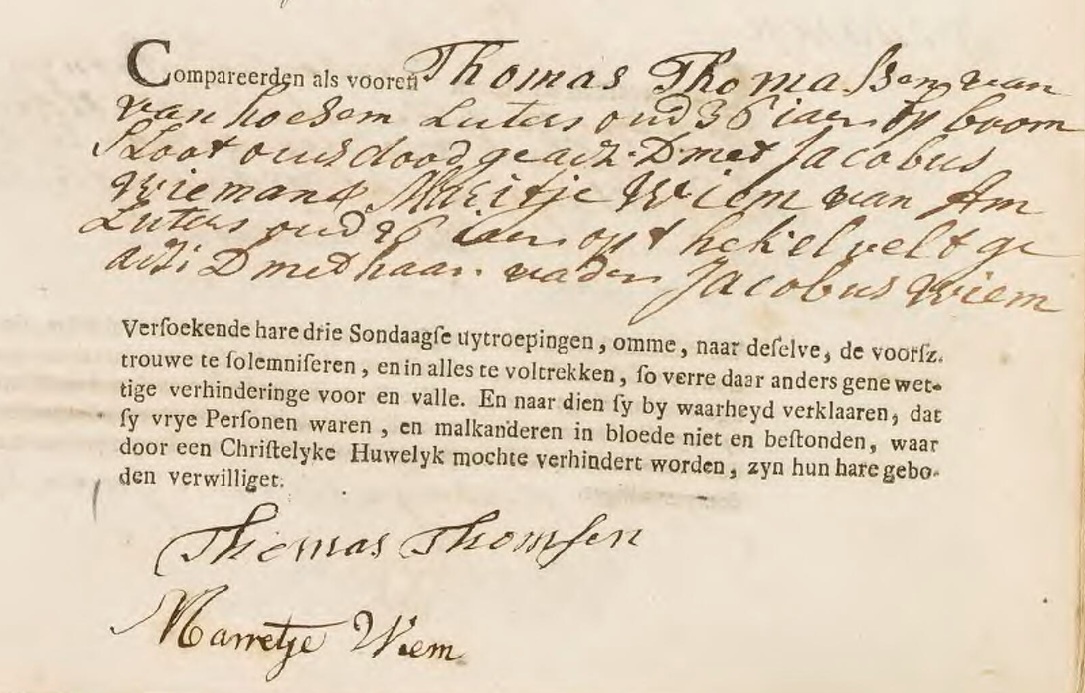 Compareerden als vooren Thomas Thomassen van
van hoesem Luters oud 36 iaer op boom
Sloot ouds dood geads D met Jacobus
Wieman & Maritje Wiem van Am
Luters oud 26 iaer op t hekelvelt ge
ads D met haar vader Jacobus Wiem
Verſoekende hare drie Sondaagſe uytroepingen, omme, naar deſelve, de voorſz.
trouwe te ſolemniſeren, en in alles te voltrekken, ſo verre daar anders gene wet-
tige verhinderinge voor en valle. En naar dien ſy by waarheyd verklaaren, dat
ſy vrye Perſonen waren, en malkanderen in bloede niet en beſtonden, waar
door een Chriſtelyke Huwelyk mochte verhindert worden, zyn hun hare gebo-
den verwilliget.
Thomas Thomſen
Marretje Wiem